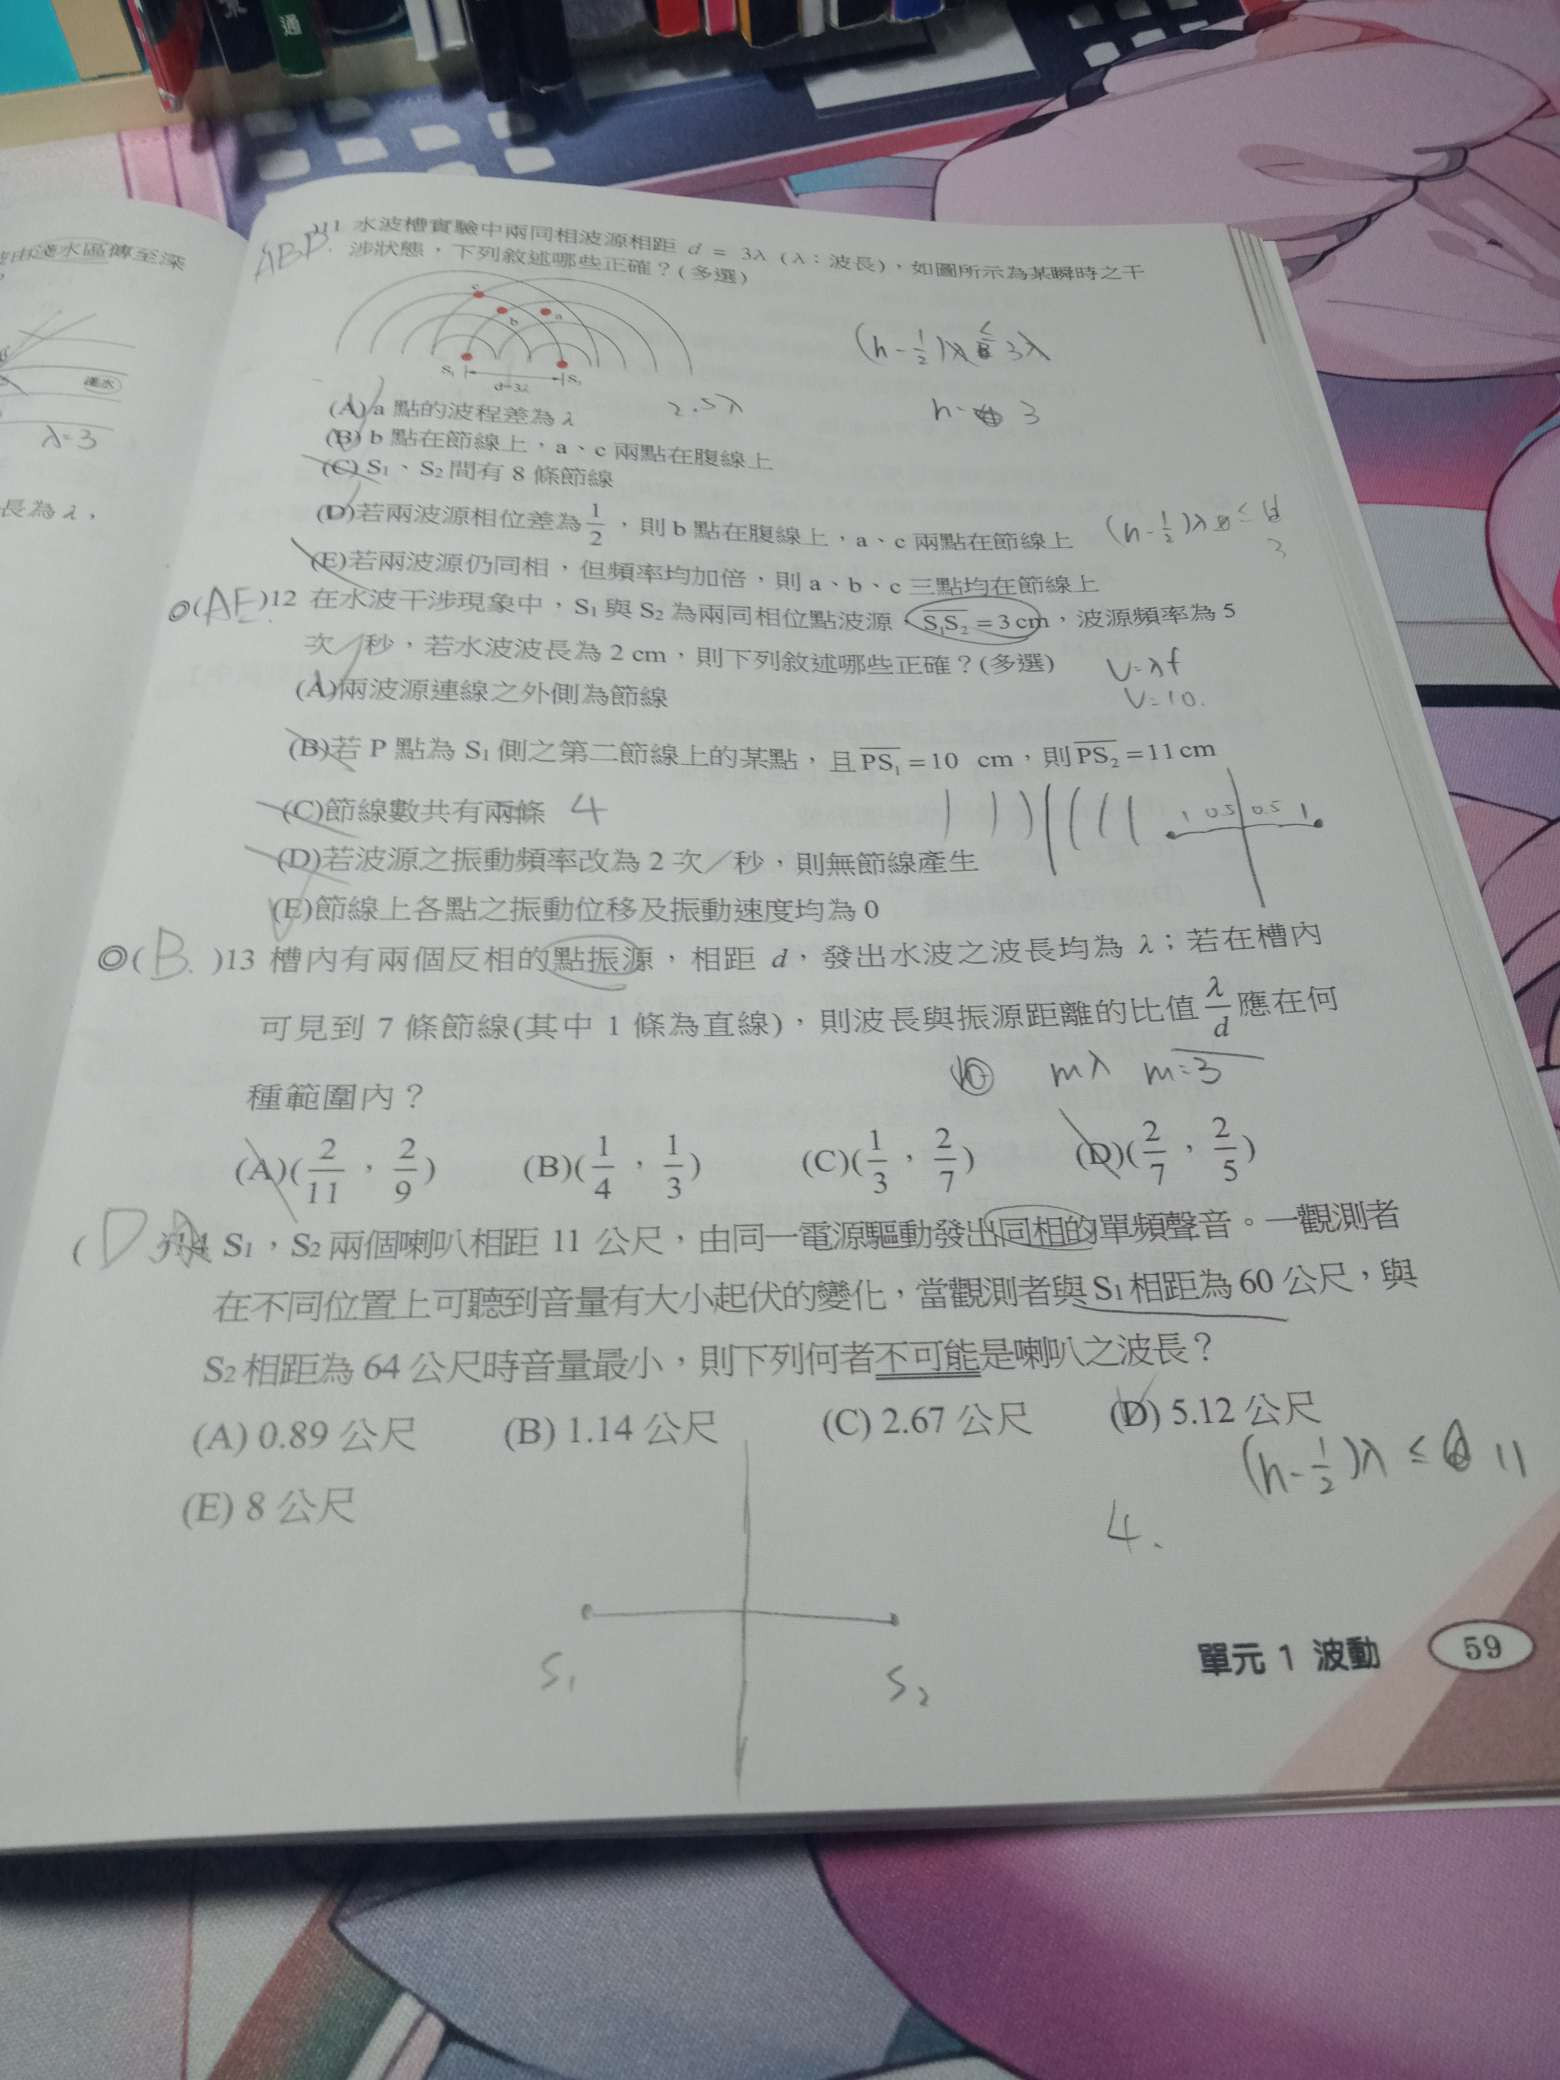 通
由淺水區傳至深
淺水
λ=3
長為 λ，
ABD. 11 水波槽實驗中兩同相波源相距 d = 3λ (λ：波長)，如圖所示為某瞬時之干
涉狀態，下列敘述哪些正確？(多選)
c
b
a
S₁
d=3λ
(n-1/2)λ ≤ 3λ
n= 3
2.5λ
(A) a 點的波程差為 λ
(B) b 點在節線上，a、c 兩點在腹線上
(C) S₁、S₂ 間有 8 條節線
(D)若兩波源相位差為 1/2，則 b 點在腹線上，a、c 兩點在節線上
(n-1/2)λ ≤ d
3
(E)若兩波源仍同相，但頻率均加倍，則 a、b、c 三點均在節線上
◎(AE.)12 在水波干涉現象中，S₁ 與 S₂ 為兩同相位點波源，S₁S₂ = 3 cm，波源頻率為 5
次／秒，若水波波長為 2 cm，則下列敘述哪些正確？(多選)
V=λf
V=10.
(A)兩波源連線之外側為節線
(B)若 P 點為 S₁ 側之第二節線上的某點，且 PS₁ = 10 cm，則 PS₂ = 11 cm
(C)節線數共有兩條 4
1 0.5 0.5 1
(D)若波源之振動頻率改為 2 次／秒，則無節線產生
(E)節線上各點之振動位移及振動速度均為 0
◎(B.)13 槽內有兩個反相的點振源，相距 d，發出水波之波長均為 λ；若在槽內
可見到 7 條節線(其中 1 條為直線)，則波長與振源距離的比值 λ/d 應在何
種範圍內？
mλ m=3
(A)(2/11，2/9) (B)(1/4，1/3) (C)(1/3，2/7) (D)(2/7，2/5)
(D )14 S₁，S₂ 兩個喇叭相距 11 公尺，由同一電源驅動發出同相的單頻聲音。一觀測者
在不同位置上可聽到音量有大小起伏的變化，當觀測者與 S₁ 相距為 60 公尺，與
S₂ 相距為 64 公尺時音量最小，則下列何者不可能是喇叭之波長？
(A) 0.89 公尺 (B) 1.14 公尺 (C) 2.67 公尺 (D) 5.12 公尺
(E) 8 公尺
(n-1/2)λ ≤ 11
4.
S₁
S₂
單元 1 波動 59